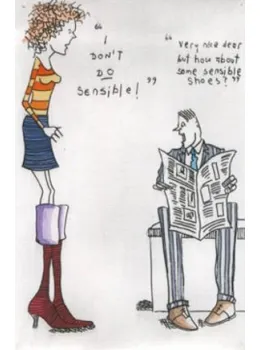 "I
DON'T
DO
Sensible!"
"Very nice dear
but how about
some sensible
shoes?"